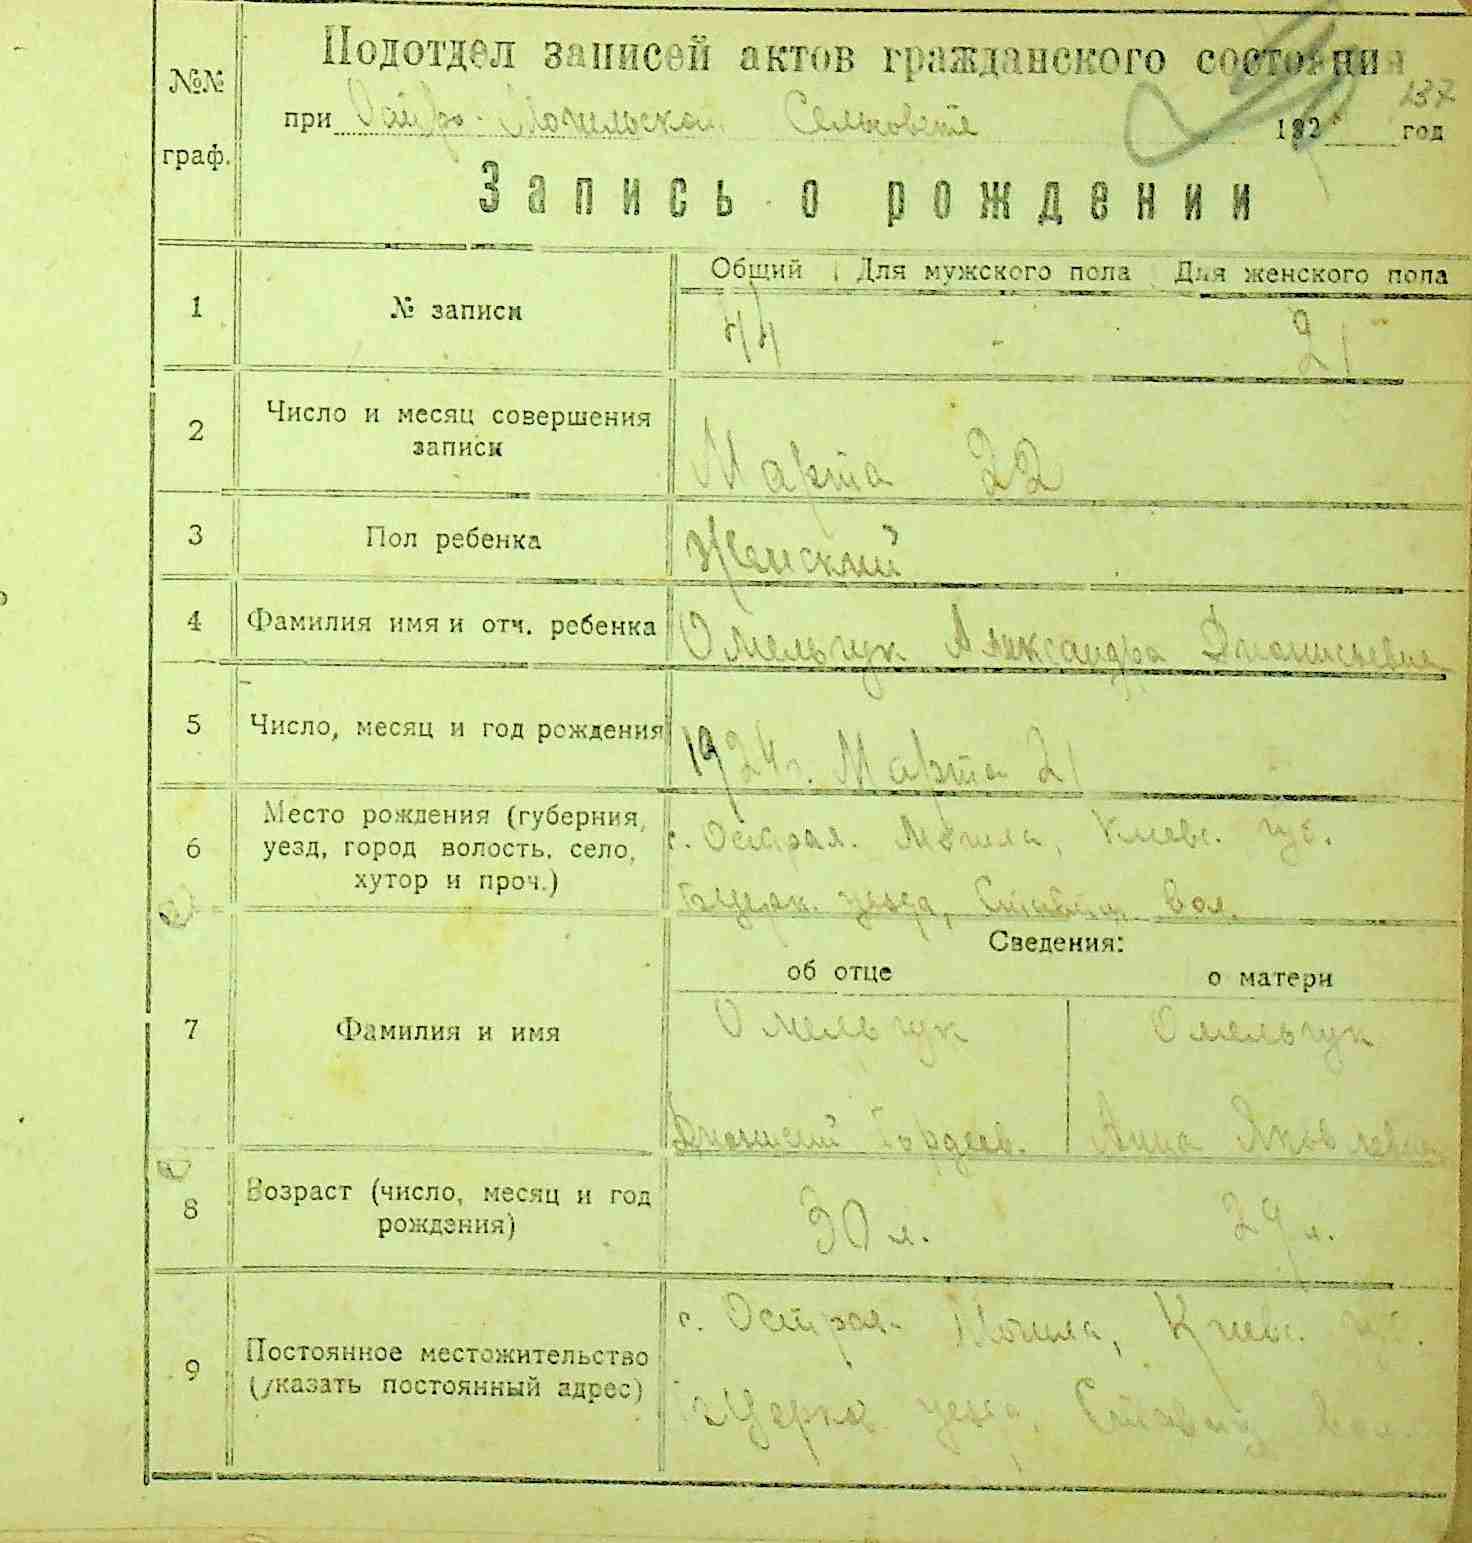 №№ граф.
Подотдел записей актов гражданского состояния
137
при Остро-Могильской Сельсовете 192 год
Запись о рождении
Общий Для мужского пола Для женского пола
1 № записи 44 - 21
2 Число и месяц совершения
записи Марта 22
3 Пол ребенка Женский
4 Фамилия имя и отч. ребенка Омельчук Александра Дионисьевна
5 Число, месяц и год рождения 1924 г. Марта 21
6 Место рождения (губерния,
уезд, город волость, село,
хутор и проч.)
с. Острая. Могила, Киевс. губ.
Бцерк. уезда, Ставищ. вол.
Сведения:
об отце о матери
7 Фамилия и имя
Омельчук Омельчук
Дионисий Гордеев. Анна Яковлевна
8 Возраст (число, месяц и год
рождения) 30 л. 29 л.
9 Постоянное местожительство
(указать постоянный адрес)
с. Острая. Могила, Киевс. губ.
Бцерко уезда, Ставищ вол.